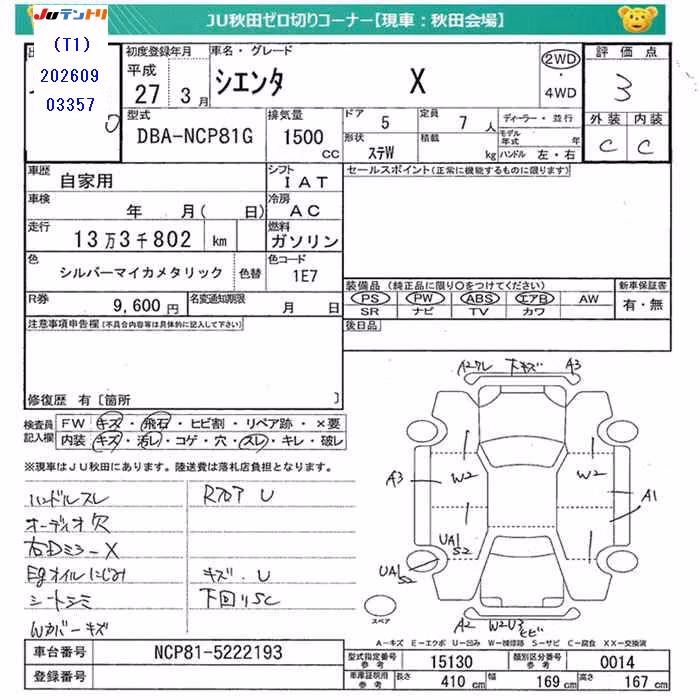 JUテントリ
JU秋田ゼロ切りコーナー【現車：秋田会場】
(T1)
202609
03357
初度登録年月
平成
27 3月
車名・グレード
シエンタ X
2WD
4WD
評価点
3
外装 内装
C C
型式
DBA-NCP81G
排気量
1500
CC
ドア 5
定員 7 人
ディーラー・並行
形状 ステW
積載 kg
モデル年式 年
ハンドル 左・右
車歴
自家用
シフト
I AT
セールスポイント(正常に機能するものに限ります)
車検
年 月( 日)
冷房
AC
走行
13万3千802 km
燃料
ガソリン
色
シルバーマイカメタリック
色替
色コード
1E7
装備品 (純正品に限り○をつけてください)
新車保証書
PS PW ABS エアB AW
SR ナビ TV カワ
有・無
R券
9,600円
名変通知期限
月 日
後日品
注意事項申告欄(不具合内容等は具体的に記入して下さい)
修復歴 有〔箇所 〕
検査員
記入欄
FW キズ・飛石・ヒビ割・リペア跡・×要
内装 キズ・汚レ・コゲ・穴・スレ・キレ・破レ
※現車はJU秋田にあります。陸送費は落札店負担となります。
ハンドルスレ
RフロアU
オーディオ穴
右Dミラ-X
Egオイルにじみ
キズ.U
シートシミ
下回りSC
Wカバーキズ
下キズ A3
A3
W2
W2
A1
UA1
S2
UA1
S2
スペア
A2
W2U3
ヒビ
A-キズ E-エクボ U-凹み W-補修跡 S-サビ C-腐食 XX-交換済
車台番号
NCP81-5222193
登録番号
型式指定番号
参考
15130
類別区分番号
参考
0014
車庫証明用
参考
長さ 410 cm
幅 169 cm
高さ 167 cm